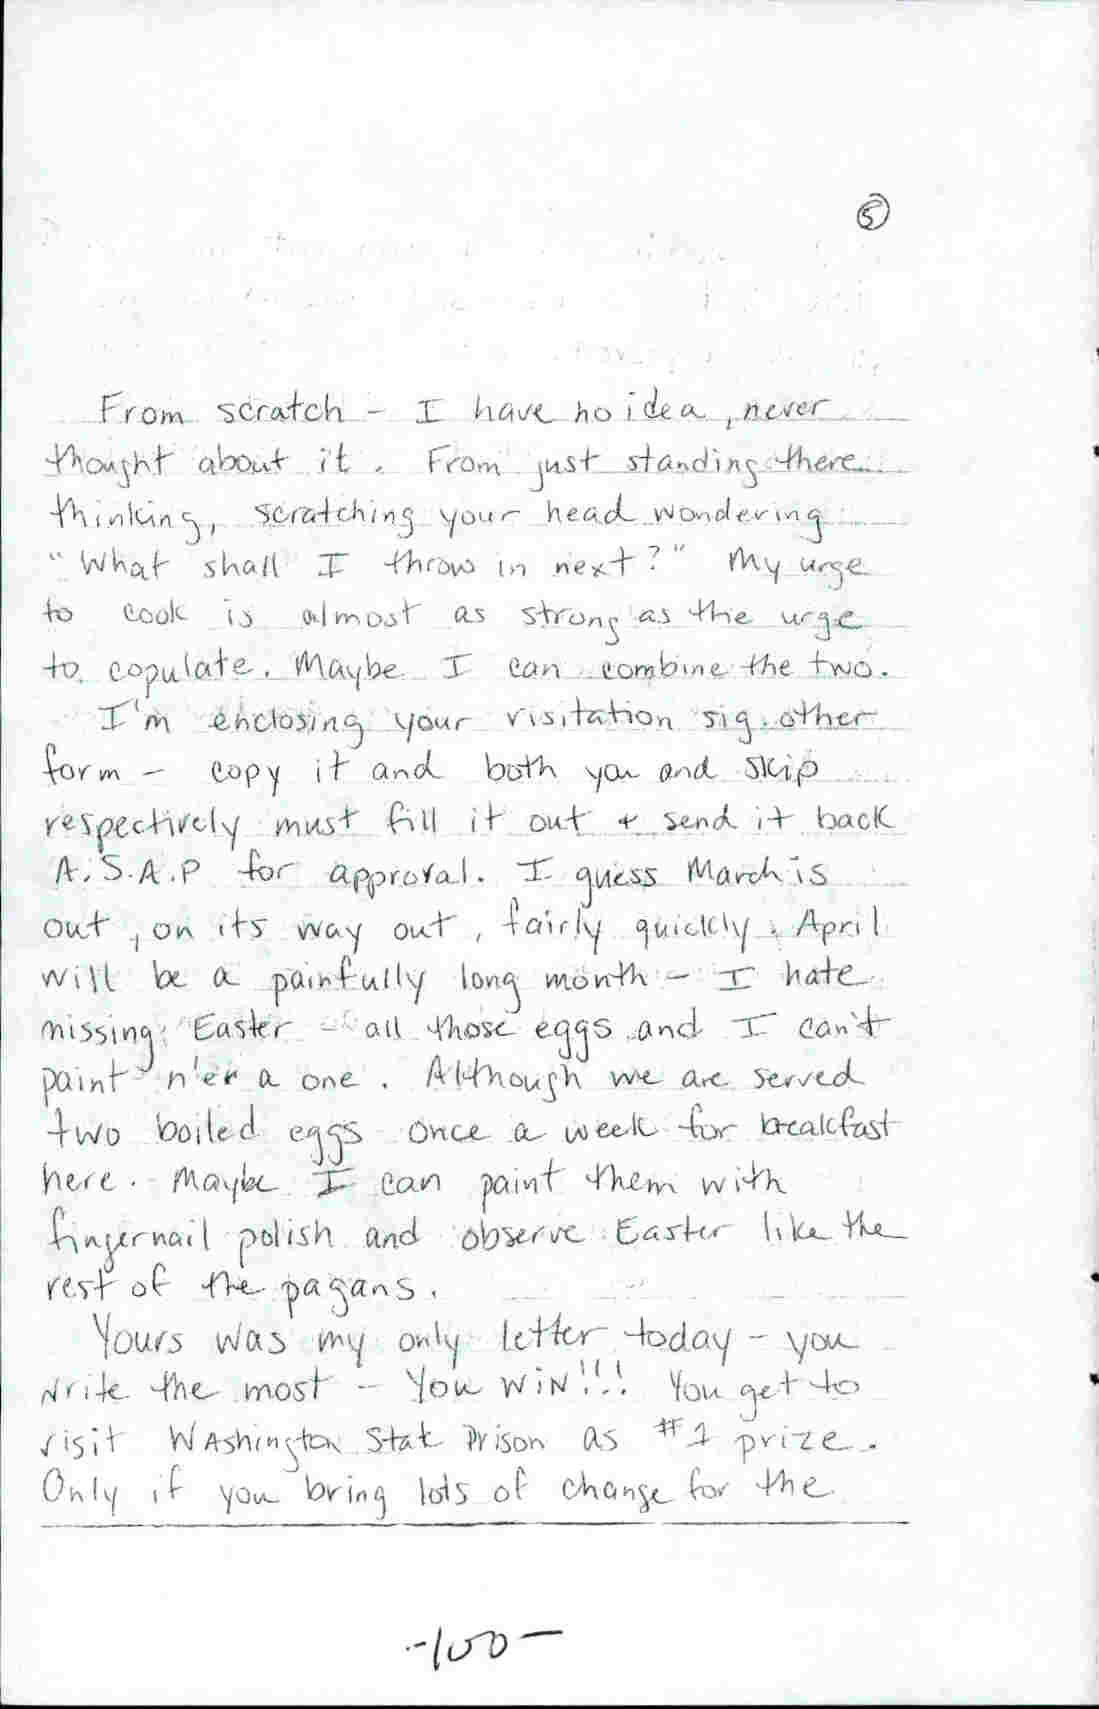 5
From scratch - I have no idea, never
thought about it. From just standing there
thinking, scratching your head wondering
"What shall I throw in next?" My urge
to cook is almost as strong as the urge
to copulate. Maybe I can combine the two.
I'm enclosing your visitation sig. other
form - copy it and both you and Skip
respectively must fill it out + send it back
A.S.A.P for approval. I guess March is
out, on its way out, fairly quickly. April
will be a painfully long month - I hate
missing Easter - all those eggs and I can't
paint n'er a one. Although we are served
two boiled eggs once a week for breakfast
here. Maybe I can paint them with
fingernail polish and observe Easter like the
rest of the pagans.
Yours was my only letter today - you
write the most - You WIN!!! You get to
visit Washington State Prison as #1 prize.
Only if you bring lots of change for the
-100-